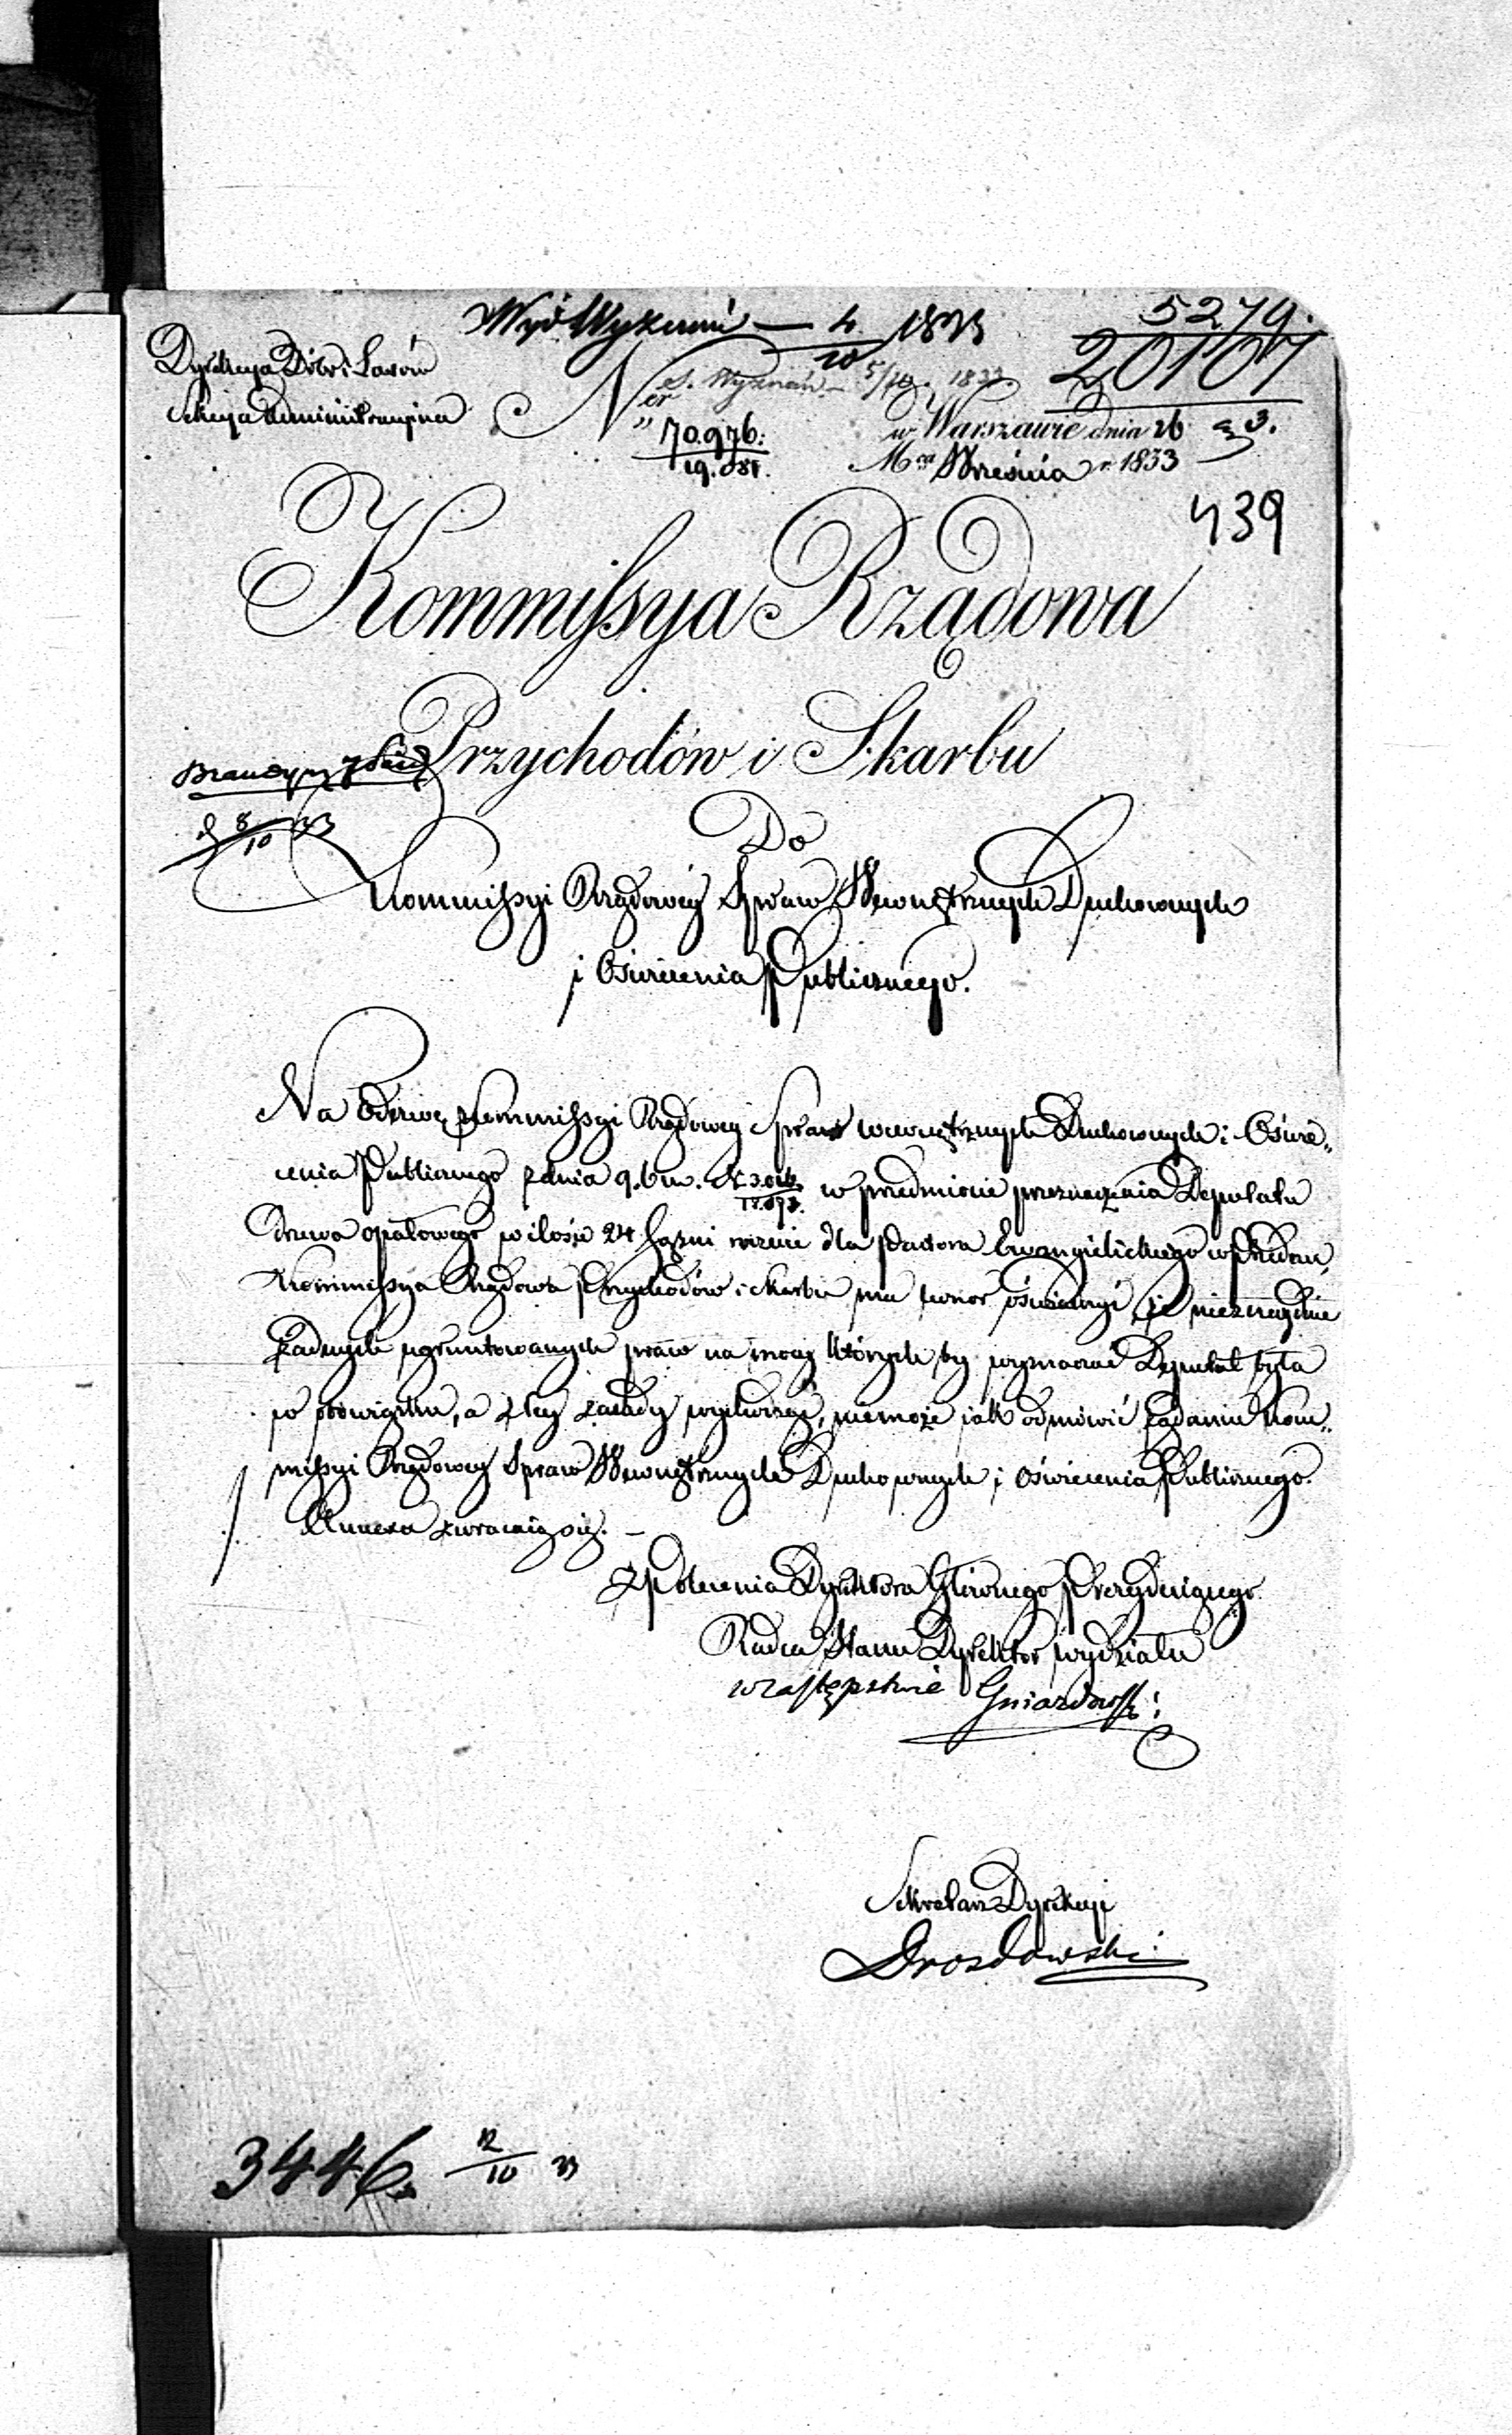 Wyd Wyznań — 4/10 1833
5279.
20107
Dyrekcya Dóbr i Lasów
Sekcya Administracyjna
Ner
S. Wyznań — 5/10 1833
" 70.976.
19.081.
w Warszawie dnia 26
Mca Września r. 1833
439
Kommissya Rządowa
Przychodów i Skarbu
d 8/10 33
Do
Kommissyi Rządowéy Spraw Wewnętrznych Duchownych
i Oświecenia Publicznego.
Na Odezwę Kommissyi Rządowey Spraw wewnętrznych Duchownych i Oświe„
cenia Publicznego z dnia 9. b m. w przedmiocie przeznaczenia Deputatu
drzewa opałowego w ilości 24 sążni rocznie dla Pastora Ewangielickiego w
Kommissya Rządowa Przychodów i Skarbu ma honor oświadczyć, że nieznayduie
żadnych ugruntowanych praw na mocy których by wyznaczać Deputat była
w obowiązku, a z tey zasady wychodząc, niemoże jak odmówić żądaniu Kom„
missyi Rządowey Spraw Wewnętrznych Duchownych i Oświecenia Publicznego.
/. Annexa zwracaią się. —
Z polecenia Dyrektora Głównego Prezyduiącego
Radca Stanu Dyrektor wydziału
w zastępstwie Gniazdowski
Sekretarz Dyrekcyi
Drozdowski
3446. 12/10 33